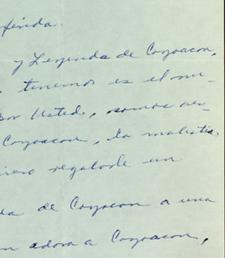 y Leyenda de Coyoacan,
tenemos es el nu-
Usted, somos
Coyoacan, la molestia
regalarle un
de Coyoacan a una
adora a Coyoacan,